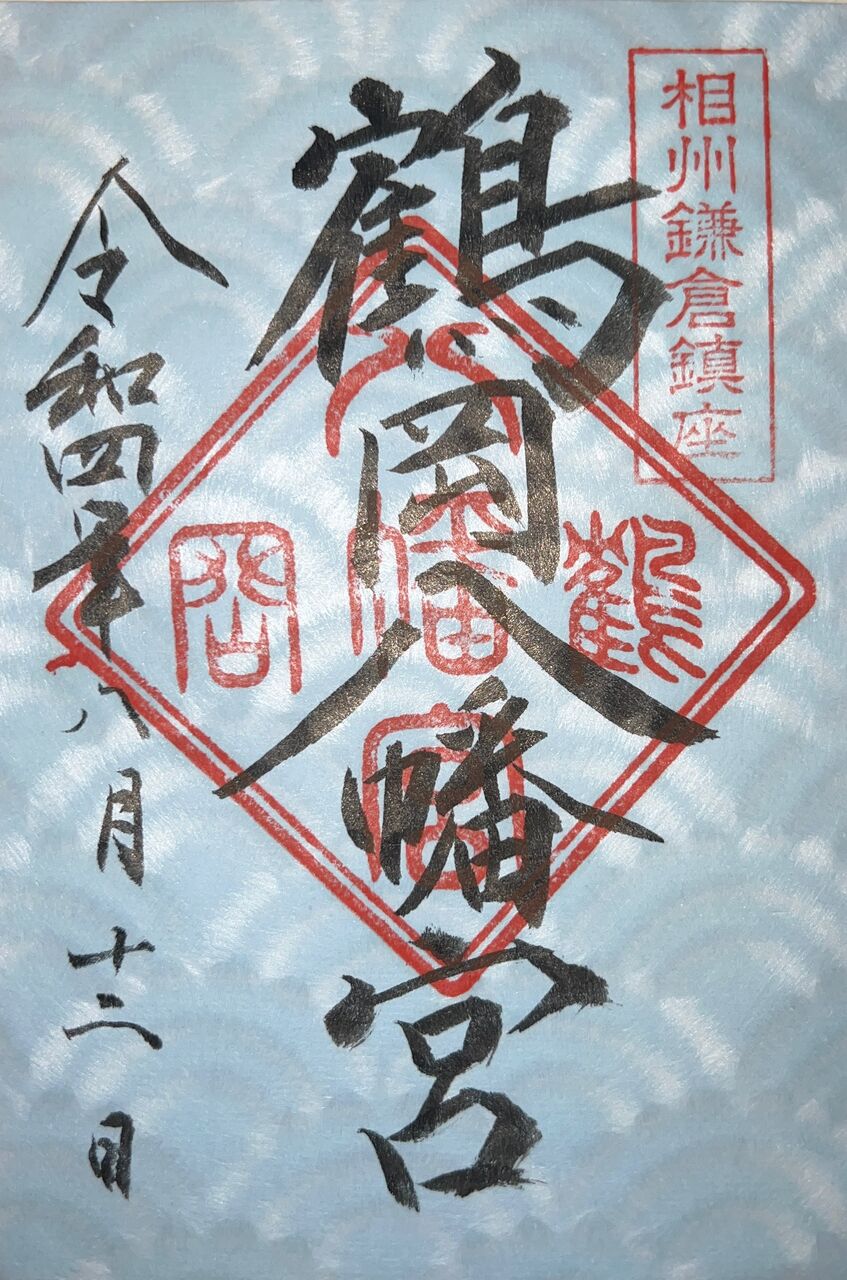 相州鎌倉鎮座
鶴岡八幡宮
鶴岡八幡宮
令和四年八月十二日